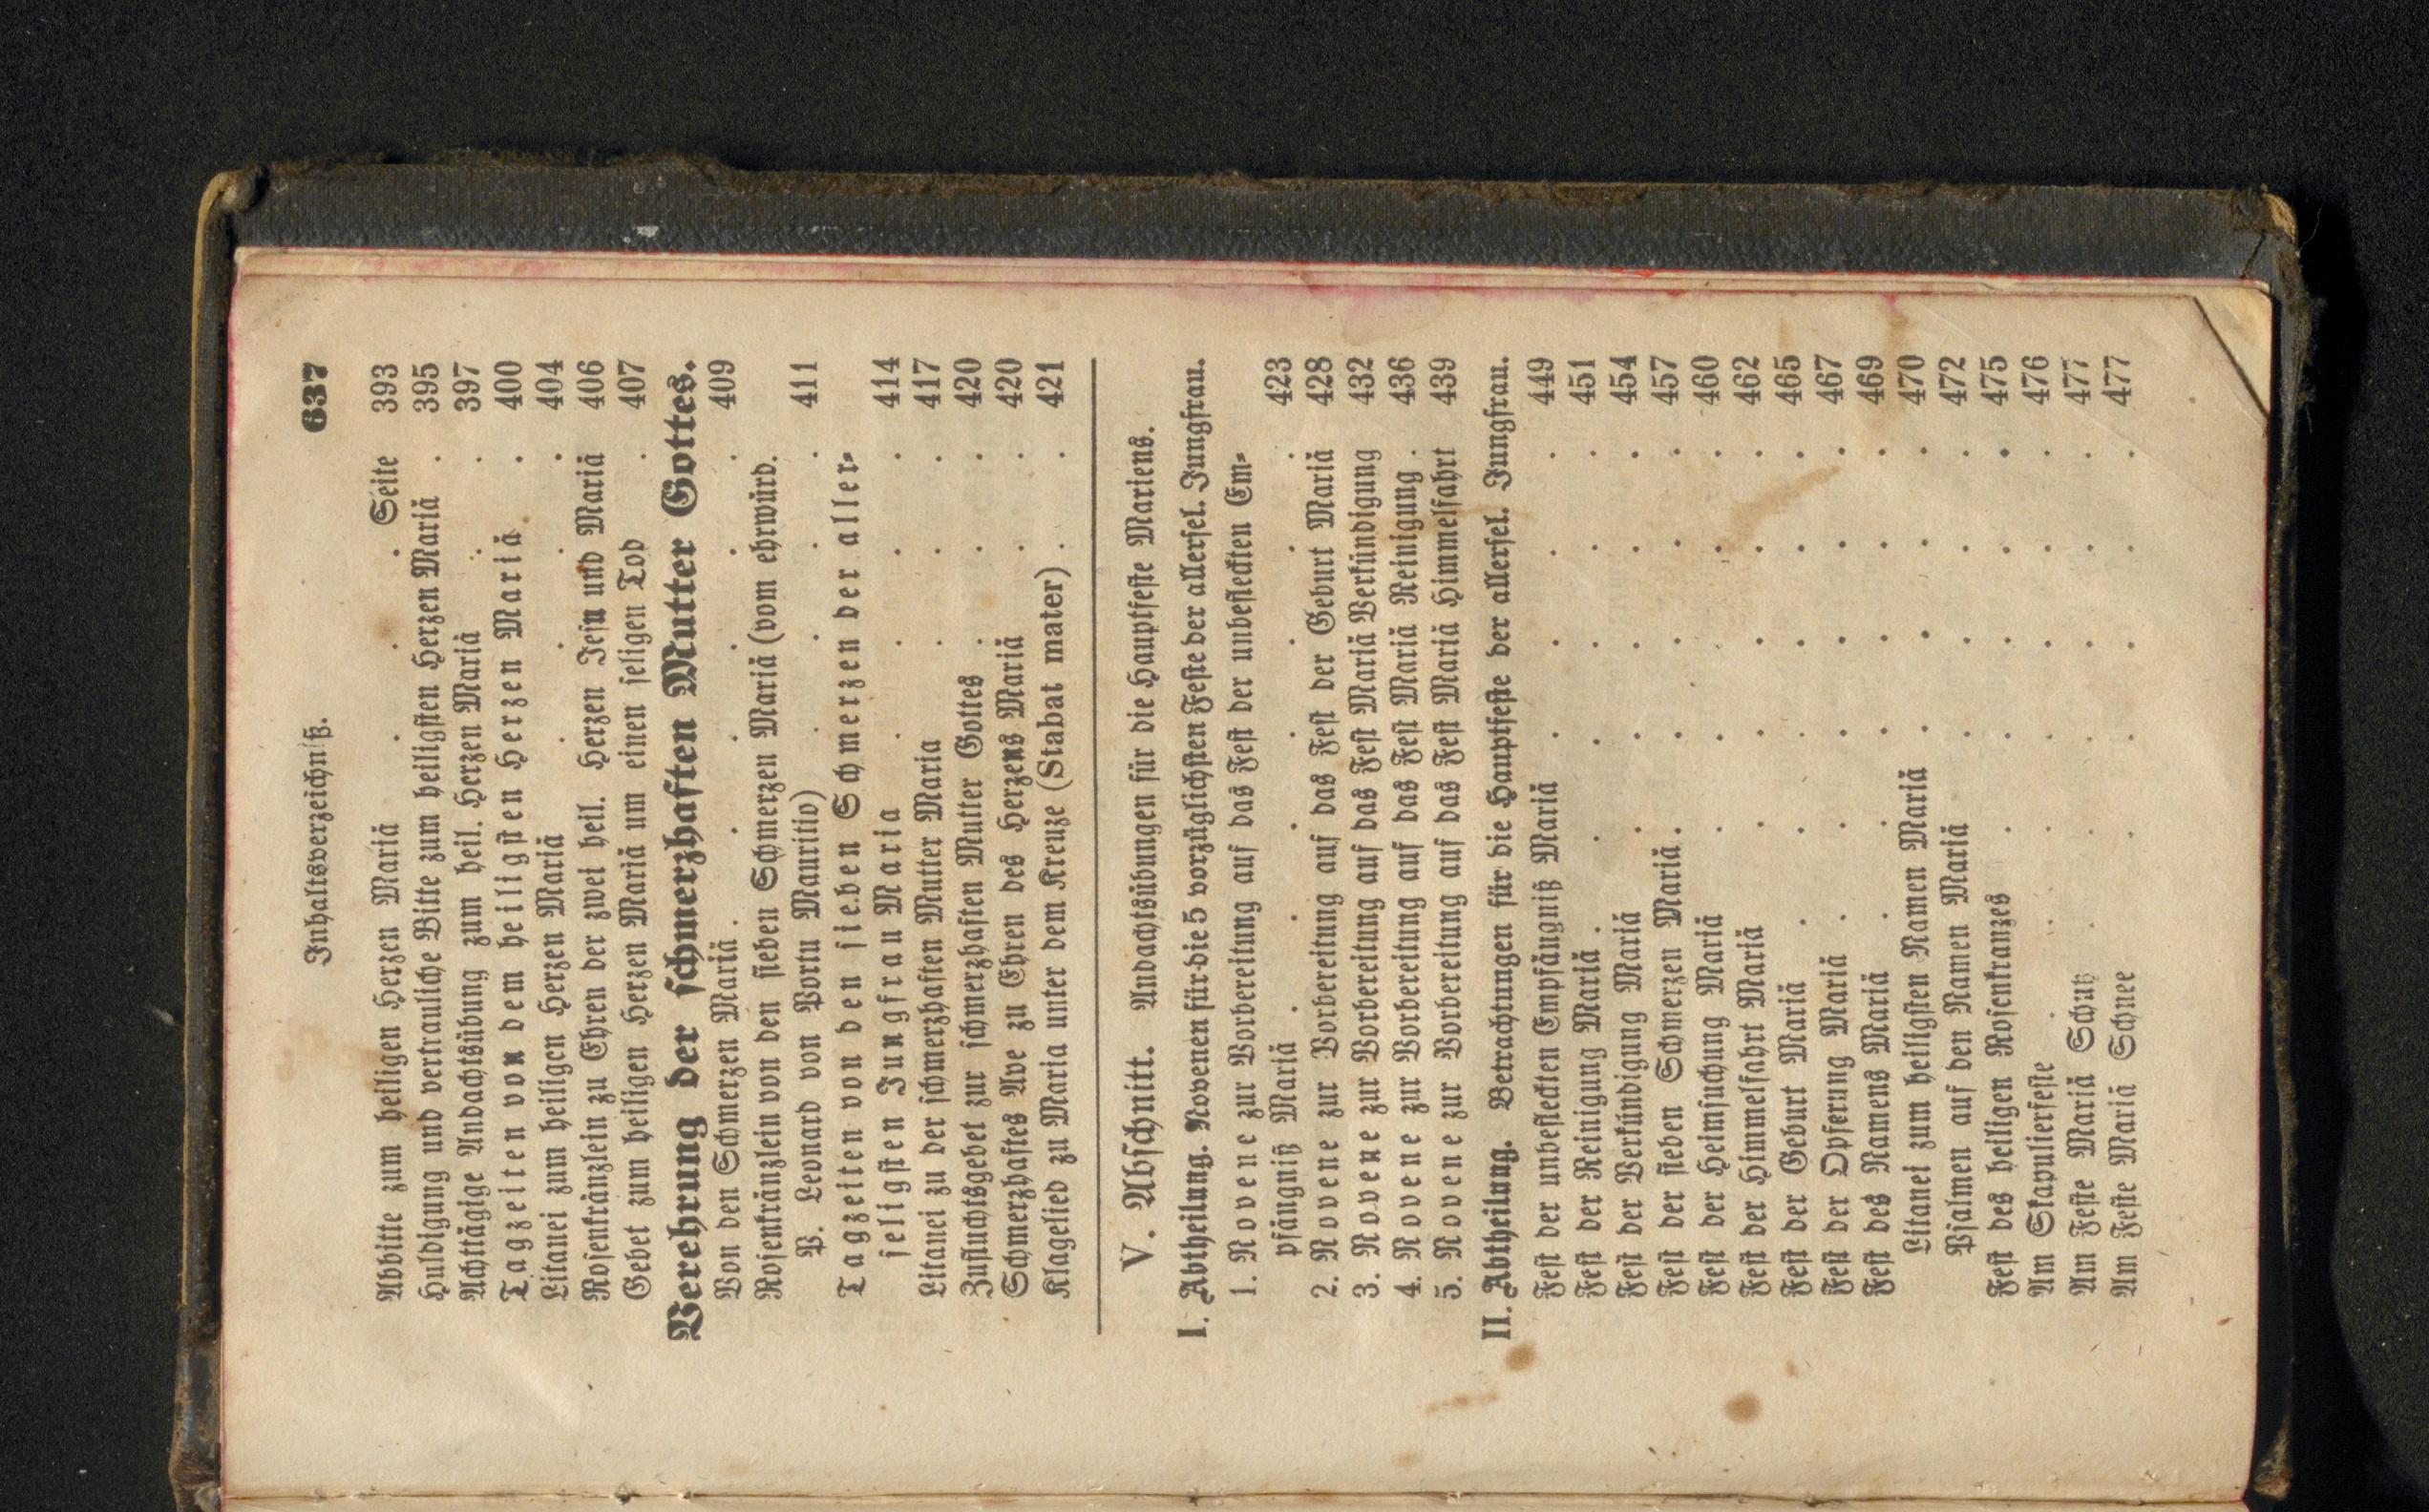 Inhaltsverzeichniß. 637
Seite
Abbitte zum heiligen Herzen Mariä . . . 393
Huldigung und vertrauliche Bitte zum heiligsten Herzen Mariä . 395
Achttägige Andachtsübung zum heil. Herzen Mariä . . 397
Tagzeiten von dem heiligsten Herzen Mariä . . 400
Litanei zum heiligen Herzen Mariä . . . . 404
Rosenkränzlein zu Ehren der zwei heil. Herzen Jesu und Mariä 406
Gebet zum heiligen Herzen Mariä um einen seligen Tod . 407
Verehrung der schmerzhaften Mutter Gottes.
Von den Schmerzen Mariä . . . . . . 409
Rosenkränzlein von den sieben Schmerzen Mariä (vom ehrwürd.
P. Leonard von Portu Mauritio) . . . . 411
Tagzeiten von den sieben Schmerzen der aller-
seligsten Jungfrau Maria . . . . 414
Litanei zu der schmerzhaften Mutter Maria . . . 417
Zufluchtsgebet zur schmerzhaften Mutter Gottes . . . 420
Schmerzhaftes Ave zu Ehren des Herzens Mariä . . 420
Klagelied zu Maria unter dem Kreuze (Stabat mater) . . 421
V. Abschnitt. Andachtsübungen für die Hauptfeste Mariens.
I. Abtheilung. Novenen für die 5 vorzüglichsten Feste der allersel. Jungfrau.
1. Novene zur Vorbereitung auf das Fest der unbefleckten Em-
pfängniß Mariä . . . . . . . 423
2. Novene zur Vorbereitung auf das Fest der Geburt Mariä 428
3. Novene zur Vorbereitung auf das Fest Mariä Verkündigung 432
4. Novene zur Vorbereitung auf das Fest Mariä Reinigung . 436
5. Novene zur Vorbereitung auf das Fest Mariä Himmelfahrt 439
II. Abtheilung. Betrachtungen für die Hauptfeste der allersel. Jungfrau.
Fest der unbefleckten Empfängniß Mariä . . . . 449
Fest der Reinigung Mariä . . . . . . 451
Fest der Verkündigung Mariä . . . . . 454
Fest der sieben Schmerzen Mariä . . . . . 457
Fest der Heimsuchung Mariä . . . . . 460
Fest der Himmelfahrt Mariä . . . . . 462
Fest der Geburt Mariä . . . . . . 465
Fest der Opferung Mariä . . . . . . 467
Fest des Namens Mariä . . . . . . 469
Litanei zum heiligsten Namen Mariä . . . . 470
Psalmen auf den Namen Mariä . . . . 472
Fest des heiligen Rosenkranzes . . . . . 475
Am Skapulierfeste . . . . . . . 476
Am Feste Mariä Schutz . . . . . . 477
Am Feste Mariä Schnee . . . . . 477